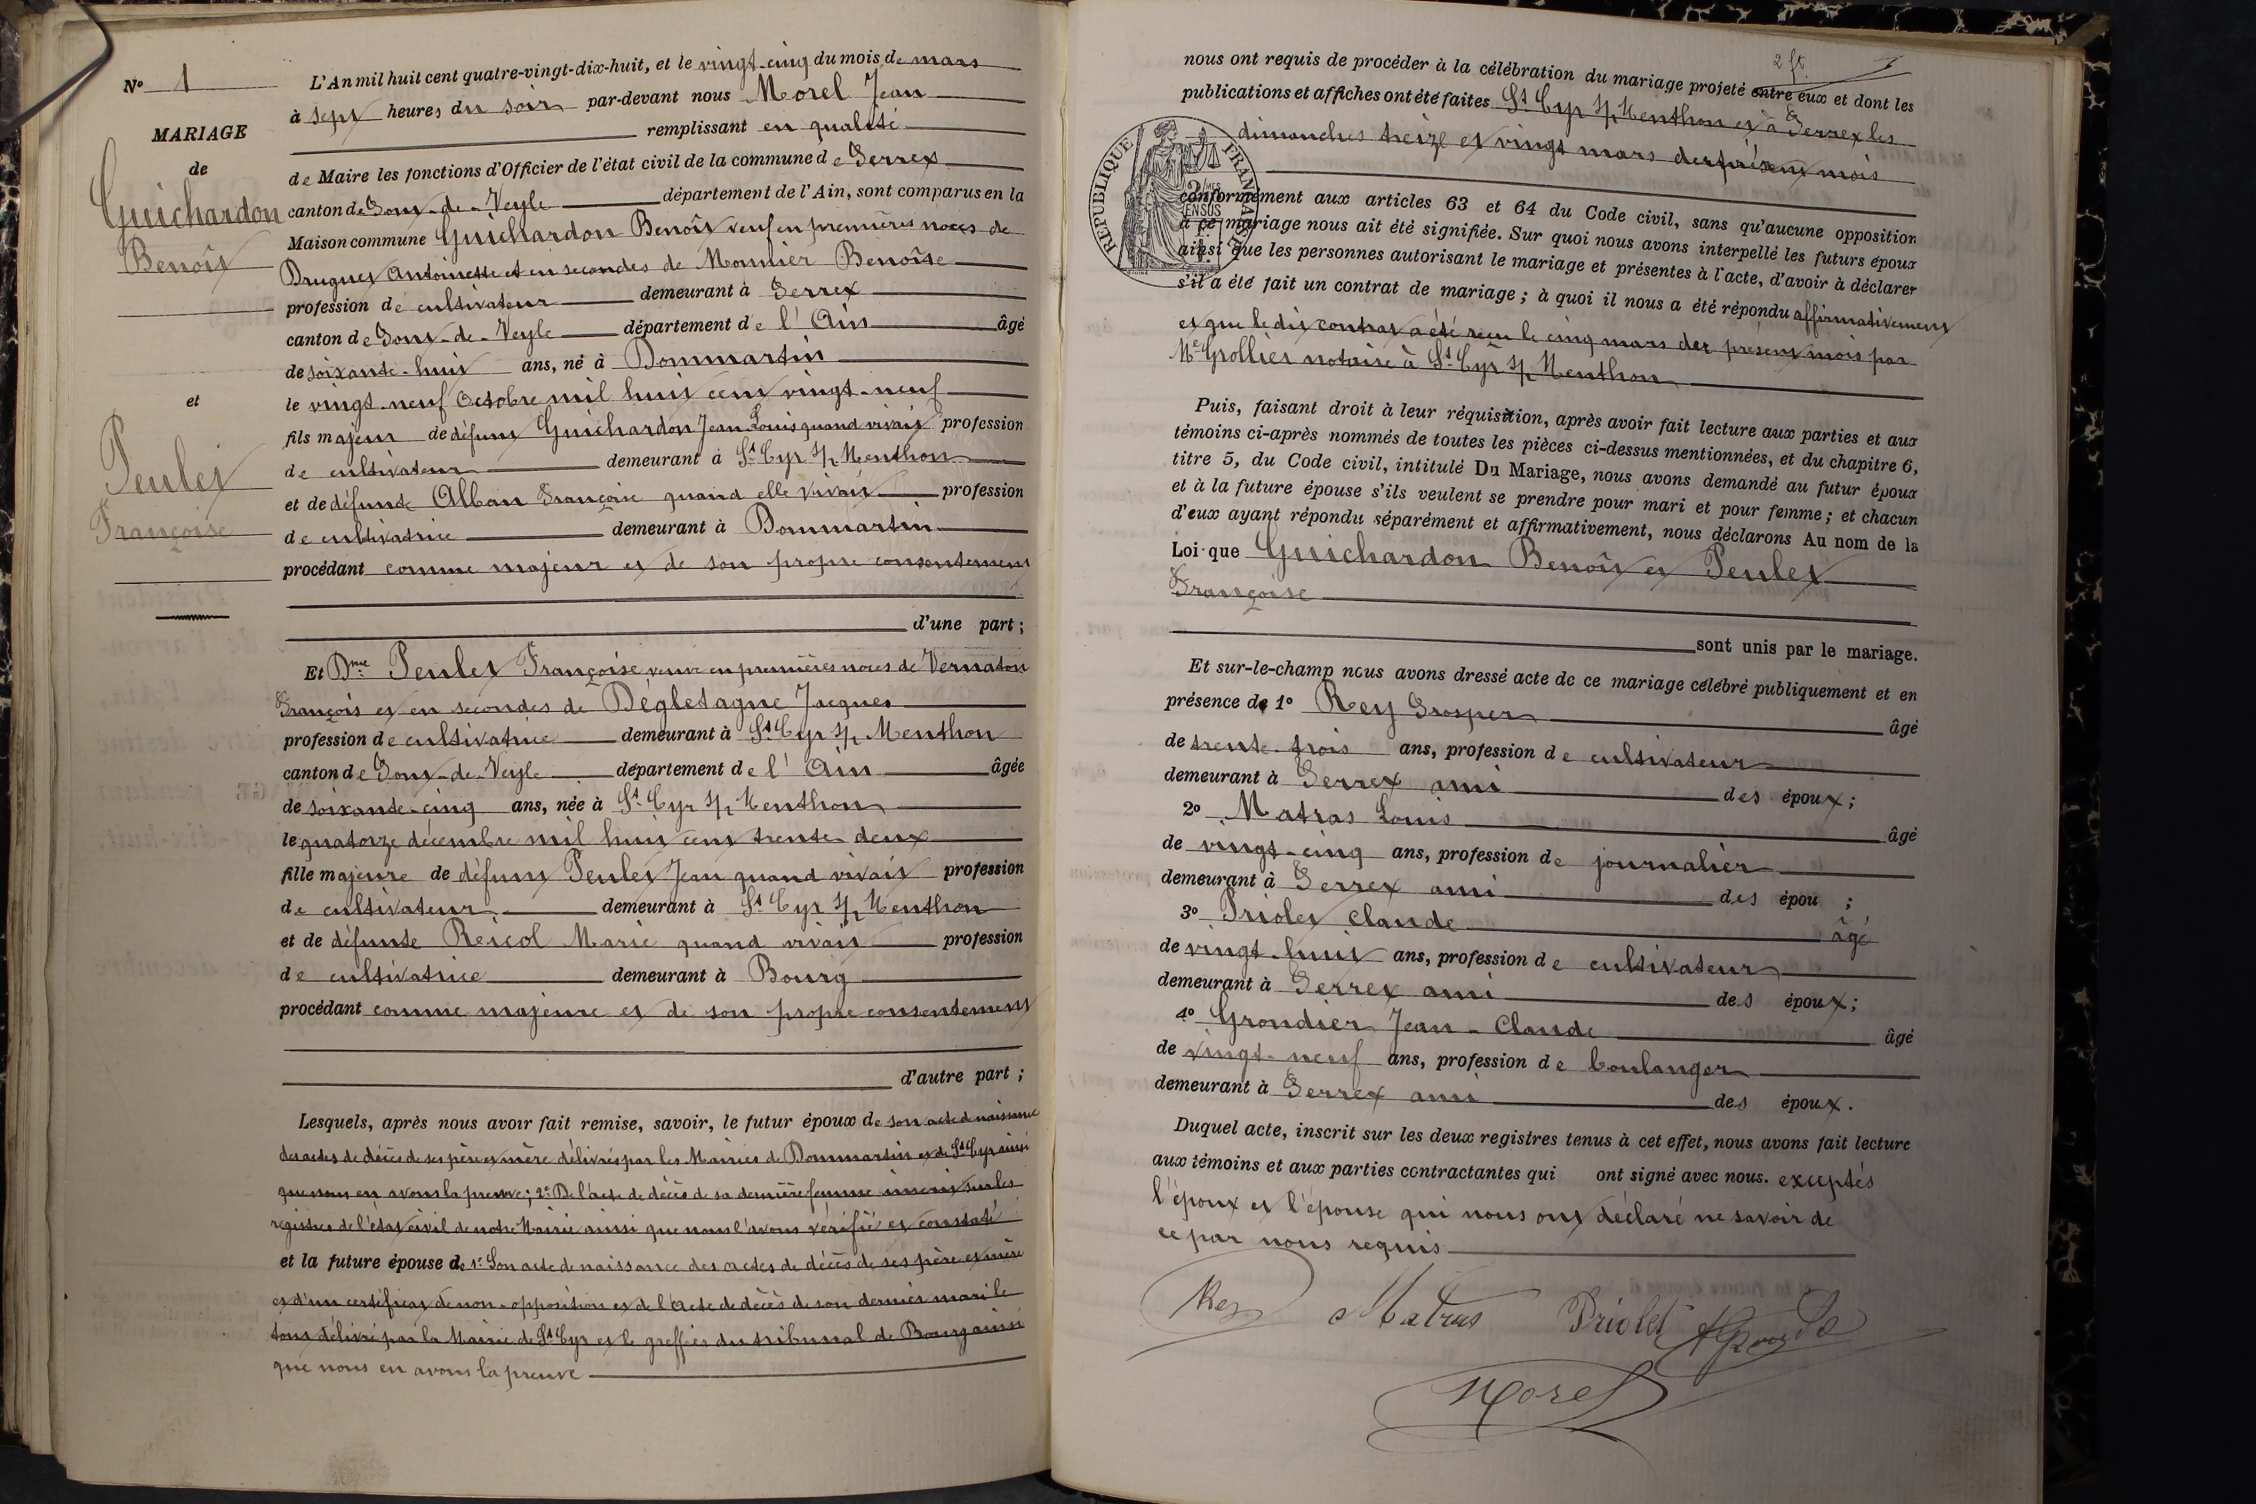 N° 1
MARIAGE
de
Guichardon
Benoît
et
Peulet
Françoise
L'An mil huit cent quatre-vingt-dix-huit, et le vingt-cinq du mois de mars
à sept heures du soir par-devant nous Morel Jean
remplissant en qualité
de Maire les fonctions d'Officier de l'état civil de la commune de Perrex
canton de Pont-de-Veyle département de l'Ain, sont comparus en la
Maison commune Guichardon Benoît veuf en premières noces de
Druguet Antoinette et en secondes de Monnier Benoîte
profession de cultivateur demeurant à Perrex
canton de Pont-de-Veyle département de l'Ain âgé
de soixante-huit ans, né à Dommartin
le vingt-neuf Octobre mil huit cent vingt-neuf
fils majeur de défunt Guichardon Jean Louis quand vivait profession
de cultivateur demeurant à St Cyr s/ Menthon
et de défunte Alban Françoise quand elle vivait profession
de cultivatrice demeurant à Dommartin
procédant comme majeur et de son propre consentement
d'une part ;
Et Dme Peulet Françoise veuve en premières noces de Vernaton
François et en secondes de Dégletagne Jacques
profession de cultivatrice demeurant à St Cyr s/ Menthon
canton de Pont-de-Veyle département de l'Ain âgée
de soixante-cinq ans, née à St Cyr s/ Menthon
le quatorze décembre mil huit cent trente deux
fille majeure de défunt Peulet Jean quand vivait profession
de cultivateur demeurant à St Cyr s/ Menthon
et de défunte Marie quand vivait profession
de cultivatrice demeurant à Bourg
procédant comme majeure et de son propre consentement
d'autre part ;
Lesquels, après nous avoir fait remise, savoir, le futur époux de son acte de naissance
des actes de décès de ses père et mère délivrés par les Mairies de Dommartin et de St Cyr ainsi
que nous en avons la preuve ; 2° De l'acte de décès de sa dernière femme inscrit sur les
registres de l'état civil de notre Mairie ainsi que nous l'avons vérifié et constaté
et la future épouse de 1° Son acte de naissance des actes de décès de ses père et mère
et d'un certificat de non-opposition et de l'Acte de décès de son dernier mari le
tout délivré par la Mairie de St Cyr et le greffier du tribunal de Bourg ainsi
que nous en avons la preuve
2 ft.
nous ont requis de procéder à la célébration du mariage projeté entre eux et dont les
publications et affiches ont été faites St Cyr s/ Menthon et à Perrex les
dimanches treize et vingt mars du présent mois
RÉPUBLIQUE FRANÇAISE
conformément aux articles 63 et 64 du Code civil, sans qu'aucune opposition
à ce mariage nous ait été signifiée. Sur quoi nous avons interpellé les futurs époux
ainsi que les personnes autorisant le mariage et présentes à l'acte, d'avoir à déclarer
s'il a été fait un contrat de mariage ; à quoi il nous a été répondu affirmativement
et que le dit contrat a été reçu le cinq mars du présent mois par
Me Grollier notaire à St Cyr s/ Menthon
Puis, faisant droit à leur réquisition, après avoir fait lecture aux parties et aux
témoins ci-après nommés de toutes les pièces ci-dessus mentionnées, et du chapitre 6,
titre 5, du Code civil, intitulé Du Mariage, nous avons demandé au futur époux
et à la future épouse s'ils veulent se prendre pour mari et pour femme ; et chacun
d'eux ayant répondu séparément et affirmativement, nous déclarons Au nom de la
Loi que Guichardon Benoît et Peulet
Françoise
sont unis par le mariage.
Et sur-le-champ nous avons dressé acte de ce mariage célébré publiquement et en
présence de 1° Rey Prosper âgé
de trente-trois ans, profession de cultivateur
demeurant à Perrex ami des époux ;
2° Matras Louis âgé
de vingt-cinq ans, profession de journalier
demeurant à Perrex ami des épou ;
3° Priolet Claude âgé
de vingt-huit ans, profession de cultivateur
demeurant à Perrex ami des époux ;
4° Grondier Jean-Claude âgé
de vingt-neuf ans, profession de boulanger
demeurant à Perrex ami des époux.
Duquel acte, inscrit sur les deux registres tenus à cet effet, nous avons fait lecture
aux témoins et aux parties contractantes qui ont signé avec nous. exceptés
l'époux et l'épouse qui nous ont déclaré ne savoir de
ce par nous requis
Rey Matras Priolet
Morel